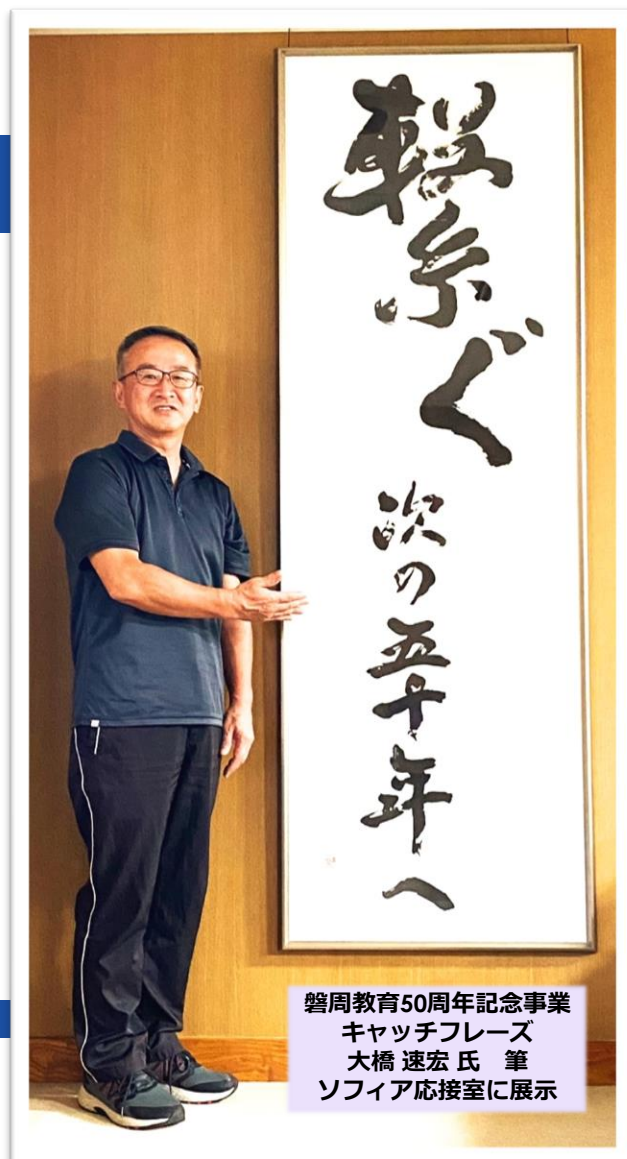 繋ぐ
次の五十年へ
磐周教育50周年記念事業
キャッチフレーズ
大橋 速宏 氏　筆
ソフィア応接室に展示